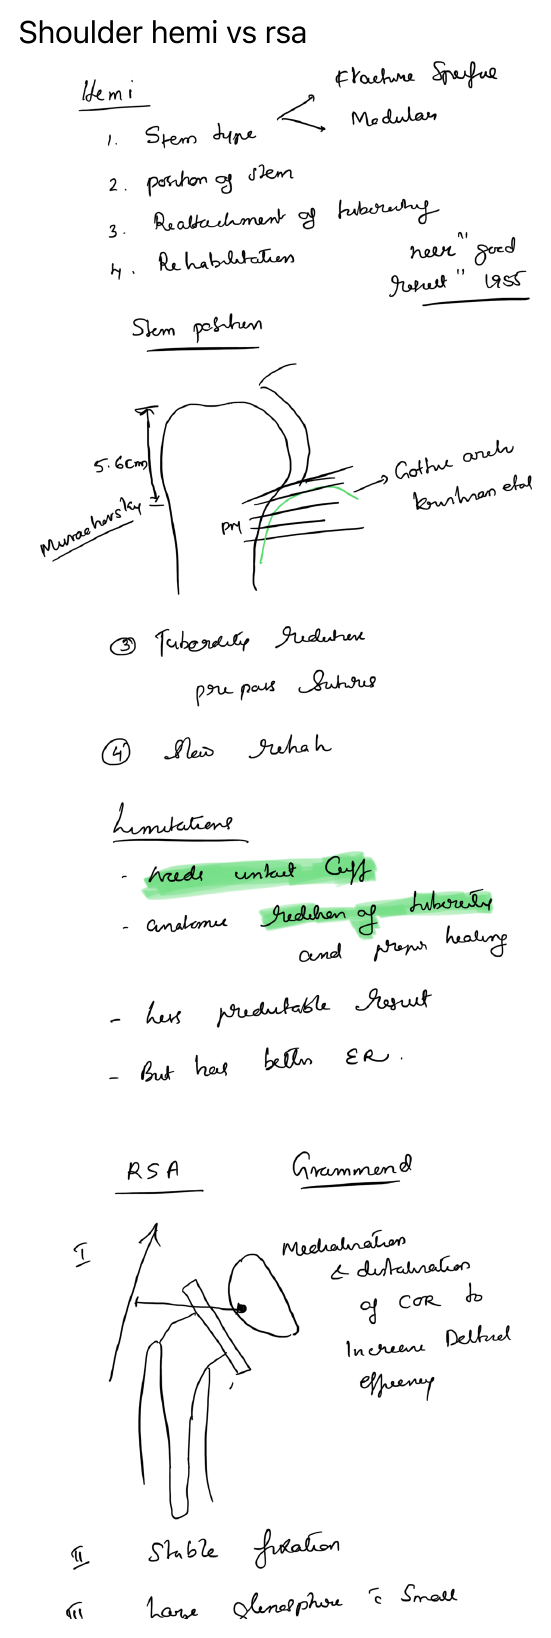 Shoulder hemi vs rsa
Hemi
Fracture Specific
Modular
1. Stem type
2. position of stem
3. Reattachment of tuberosity
4. Rehabilitation
neer "good
result" 1955
Stem position
5.6cm
Gothic arch
Krishnan etal
PM
③ Tuberosity reduction
pre pass Sutures
④ Slow rehab
Limitations
- needs intact Cuff
- anatomic reduction of tuberosity
and proper healing
- less predictable result
- But has better ER.
RSA Grammond
I
Medialisation
& distalisation
of COR to
Increase Deltoid
efficency
II Stable fixation
III Large glenosphere c̄ small